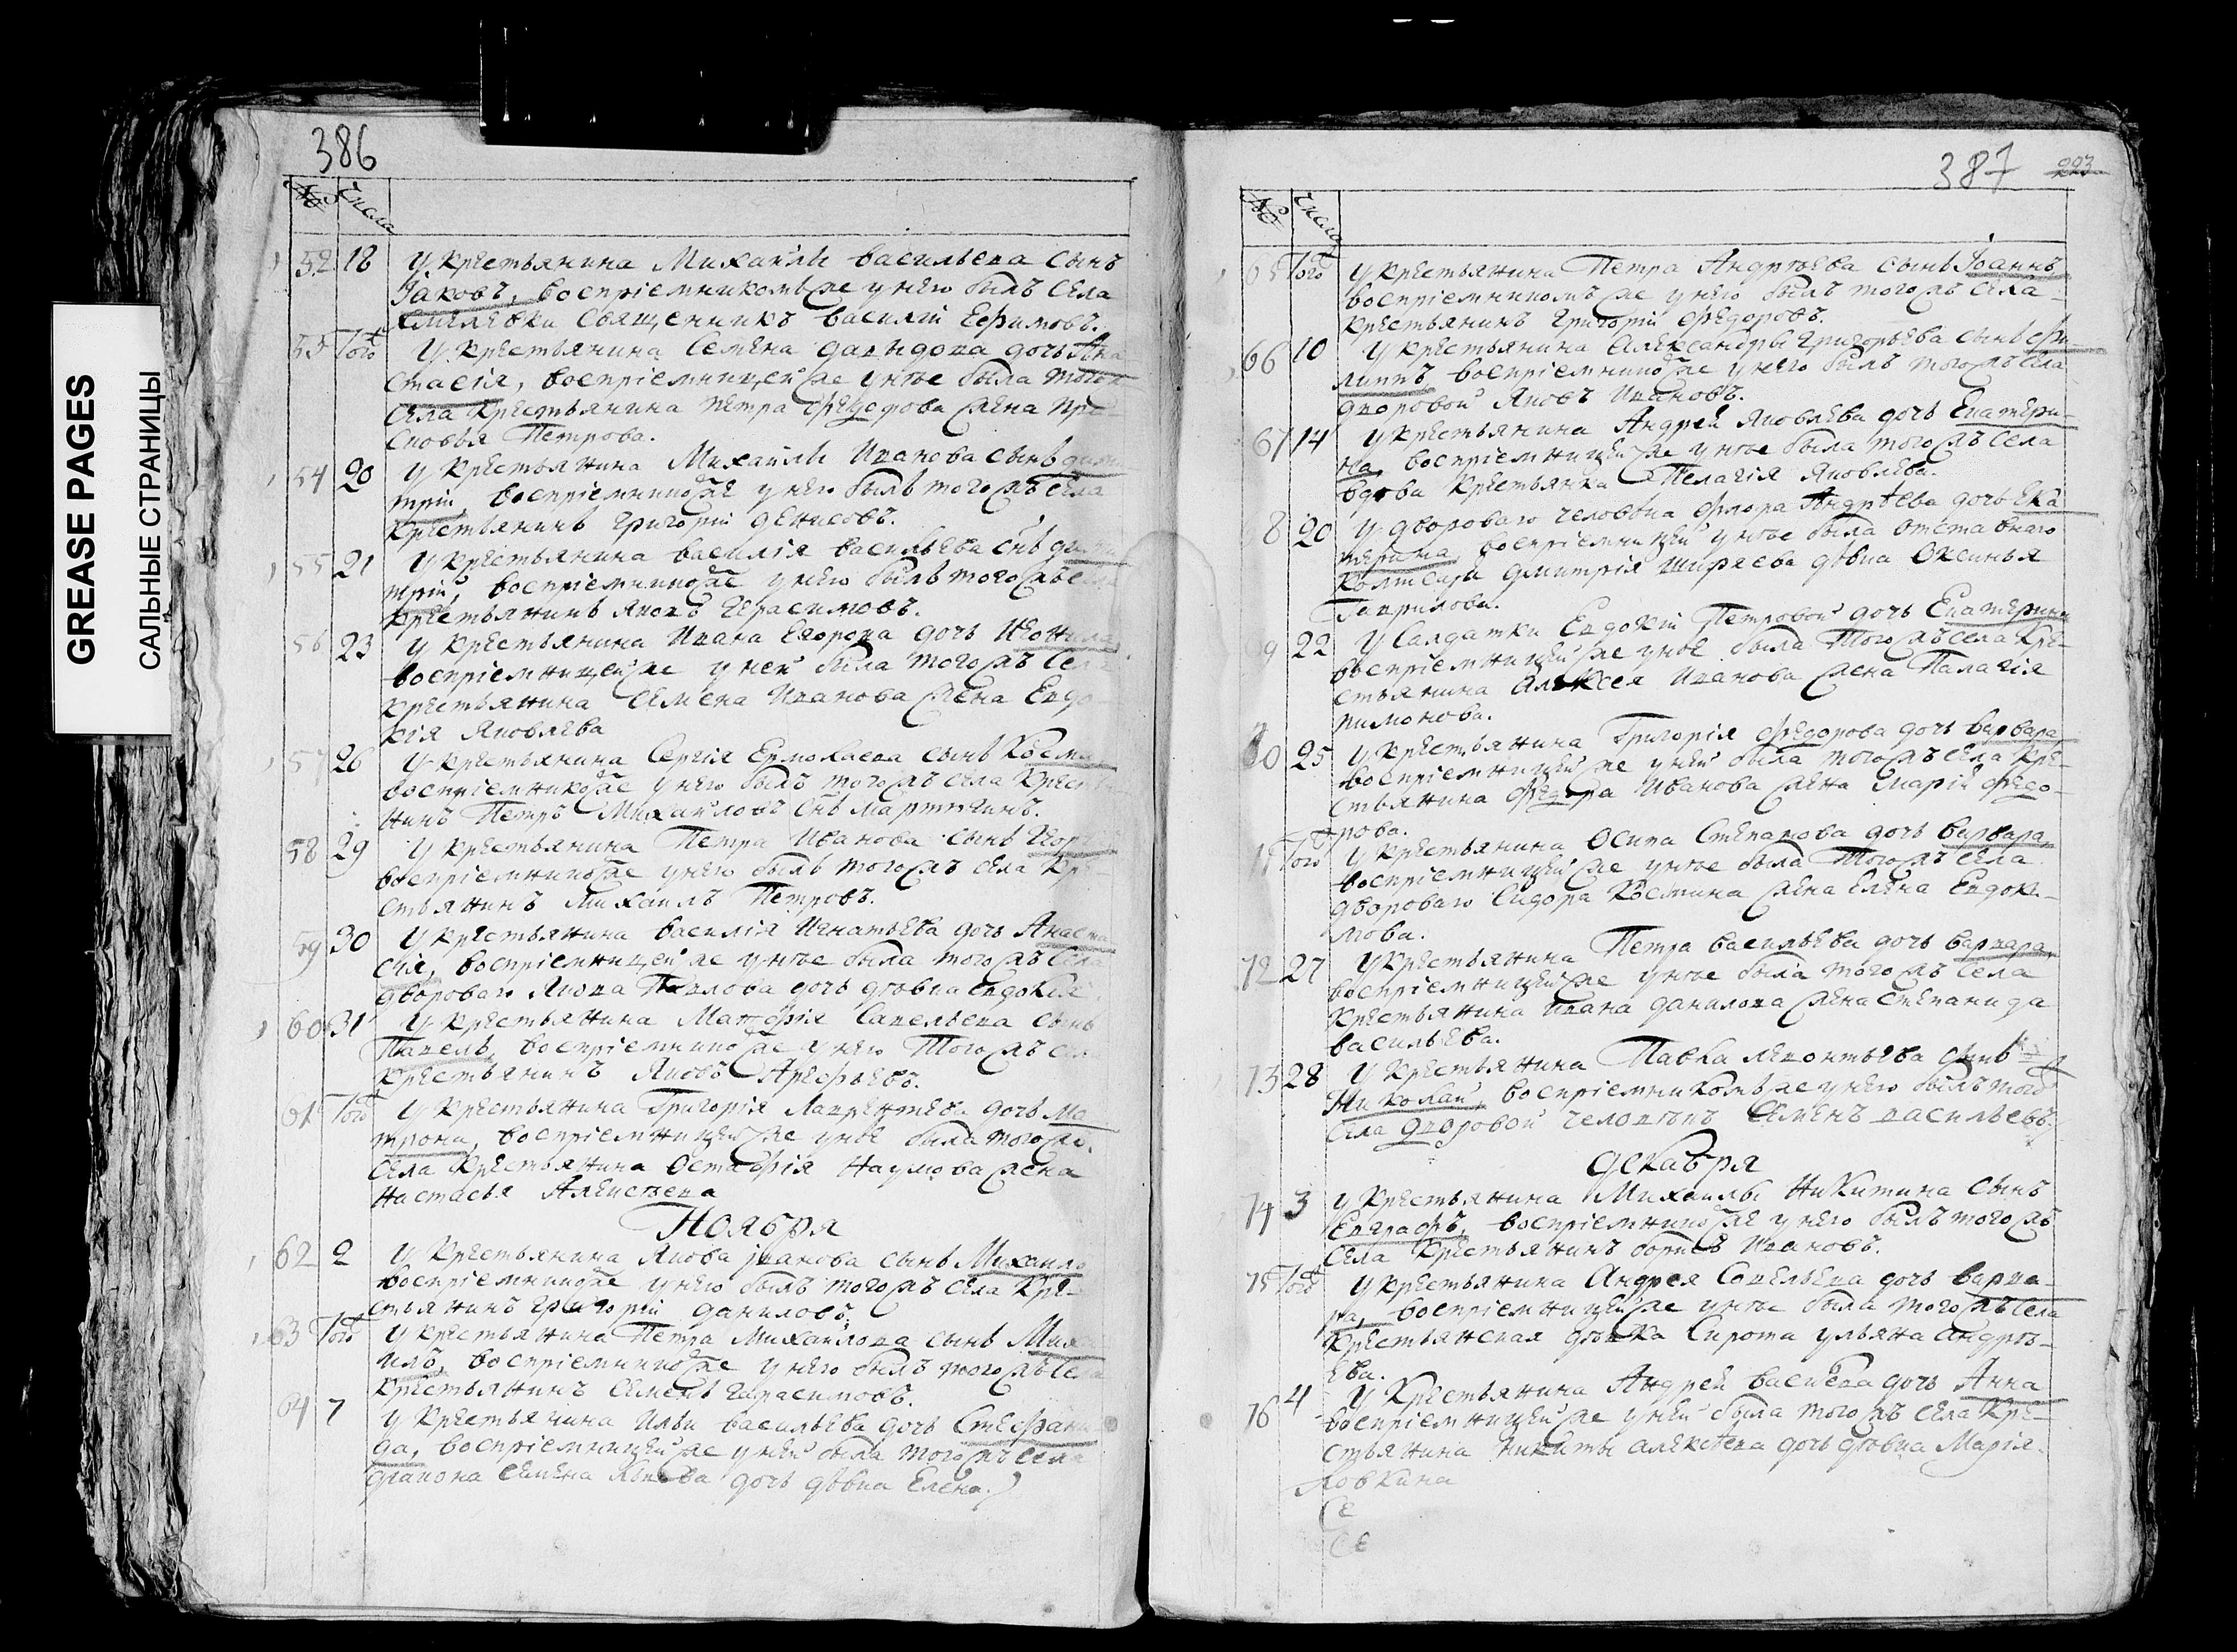 GREASE PAGES
САЛЬНЫЕ СТРАНИЦЫ
386
№ Числа
52 18 У крестьянина Михайлы васильева сынъ
Iаковъ, воспрiемникомъ же у него былъ села
священникъ василiй Ефимовъ.
53 Того У крестьянина Семена давыдова дочь Ана
стасiя, воспрiемницей же у нѣе была того ж
села крестьянина петра федорова жена Пра
сковья Петрова.
54 20 У крестьянина Михайлы Иванова сынъ дими
трiй, воспрiемнико же у него былъ того жъ села
крестьянинъ григорiй денисовъ.
55 21 У крестьянина василiя васильева снъ дими
трiй, воспрiемнико же у него былъ того жъ села
крестьянинъ яковъ Герасимовъ.
56 23 У крестьянина Ивана Егорова дочь Неонила
воспрiемницей же у ней была того жъ села
крестьянина семена Иванова жена Евдо
кiя яковлева
57 26 У крестьянина Сергiя Ермолаева сынъ Косма
воспрiемнико же у него былъ того жъ села крестья
нинъ Петръ Михайловъ снъ мартычинъ.
58 29 У крестьянина Петра Иванова сынъ Геор
воспрiемнико же у него былъ того жъ села кр
стьянинъ михаилъ Петровъ.
59 30 У крестьянина василiя Игнатьева дочь Анаста
сiя, воспрiемницей же у нѣе была того жъ села
двороваго якова Павлова дочь дѣвка Евдокiя
60 31 У крестьянина Матфѣя Савельева сынъ
Павелъ, воспрiемнико же у него того жъ сел
крестьянинъ яковъ Арефьевъ.
61 Того У крестьянина Григорiя Лаврентьева дочь Ма
трона, воспрiемницей же у нѣе была того ж
села крестьянина Остафiя Наумова жена
Настасья Алексѣева
Ноября
62 2 У крестьянина якова iванова сынъ Михаилъ
воспрiемнико же у него былъ того жъ села кре-
стьянинъ григорiй даниловъ.
63 Того У крестьянина Петра михайлова сынъ Миха
илъ, воспрiемнико же у него былъ того жъ села
крестьянинъ семенъ Гарасимовъ.
64 7 У крестьянина Ильи васильева дочь Стефани
да, воспрiемницей же у ней была того жъ села
дьякона семена дочь дѣвка Елена.
387 223
№ Числа
65 Того У крестьянина Петра Андрѣева сынъ Iоаннъ
воспрiемникомъ же у него былъ того жъ села
крестьянинъ григорiй федоровъ.
66 10 У крестьянина александры григорьева сынъ фи-
липпъ воспрiемнико же у него былъ того жъ села
дворовой яковъ Ивановъ.
67 14 У крестьянина Андрея яковлева дочь Екатери-
на, воспрiемницей же у нѣе была того жъ села
вдова крестьянка Пелагiя яковлева.
8 20 У двороваго человѣка флора Андрѣева дочь Ека
терина, воспрiемницей у нѣе была отставнаго
дмитрiя ширяева дѣвка Оксинья
Гаврилова.
9 22 У Салдатки Евдокiи Петровой дочь Екатерина
воспрiемницей же у нѣе была того жъ села кре-
стьянина алексея Иванова жена Палагiя
пимонова.
70 25 У крестьянина Григорiя федорова дочь варвара
воспрiемницей же у ней была того жъ села кре-
стьянина федора Иванова жена марiя федо-
рова.
71 Того У крестьянина Осипа Степанова дочь варвара
воспрiемницей же у нѣе была того жъ села
двороваго сидора Костина жена Елена Евдоки-
мова.
72 27 У крестьянина Петра васильева дочь варвара
воспрiемницей же у нѣе была того жъ села
крестьянина Ивана данилова жена степанида
васильева.
73 28 У крестьянина Павла левонтьева сынъ
Николай, воспрiемникомъ же у него былъ того
села дворовой человѣкъ семенъ васильевъ.
декабря
74 3 У крестьянина Михайлы Никитина сынъ
Евграфъ, воспрiемнико же у него былъ того жъ
села крестьянинъ борисъ Ивановъ.
75 Того У крестьянина Андрея Савельева дочь варва-
ра, воспрiемницей же у нѣе была того жъ села
крестьянская дѣвка сирота ульяна андрѣ-
ева.
76 4 У крестьянина Андрея васи́ева дочь Анна
воспрiемницей же у ней была того жъ села кре-
стьянина никиты алексѣева дочь дѣвка Марiя.
ловкина
Се
Се